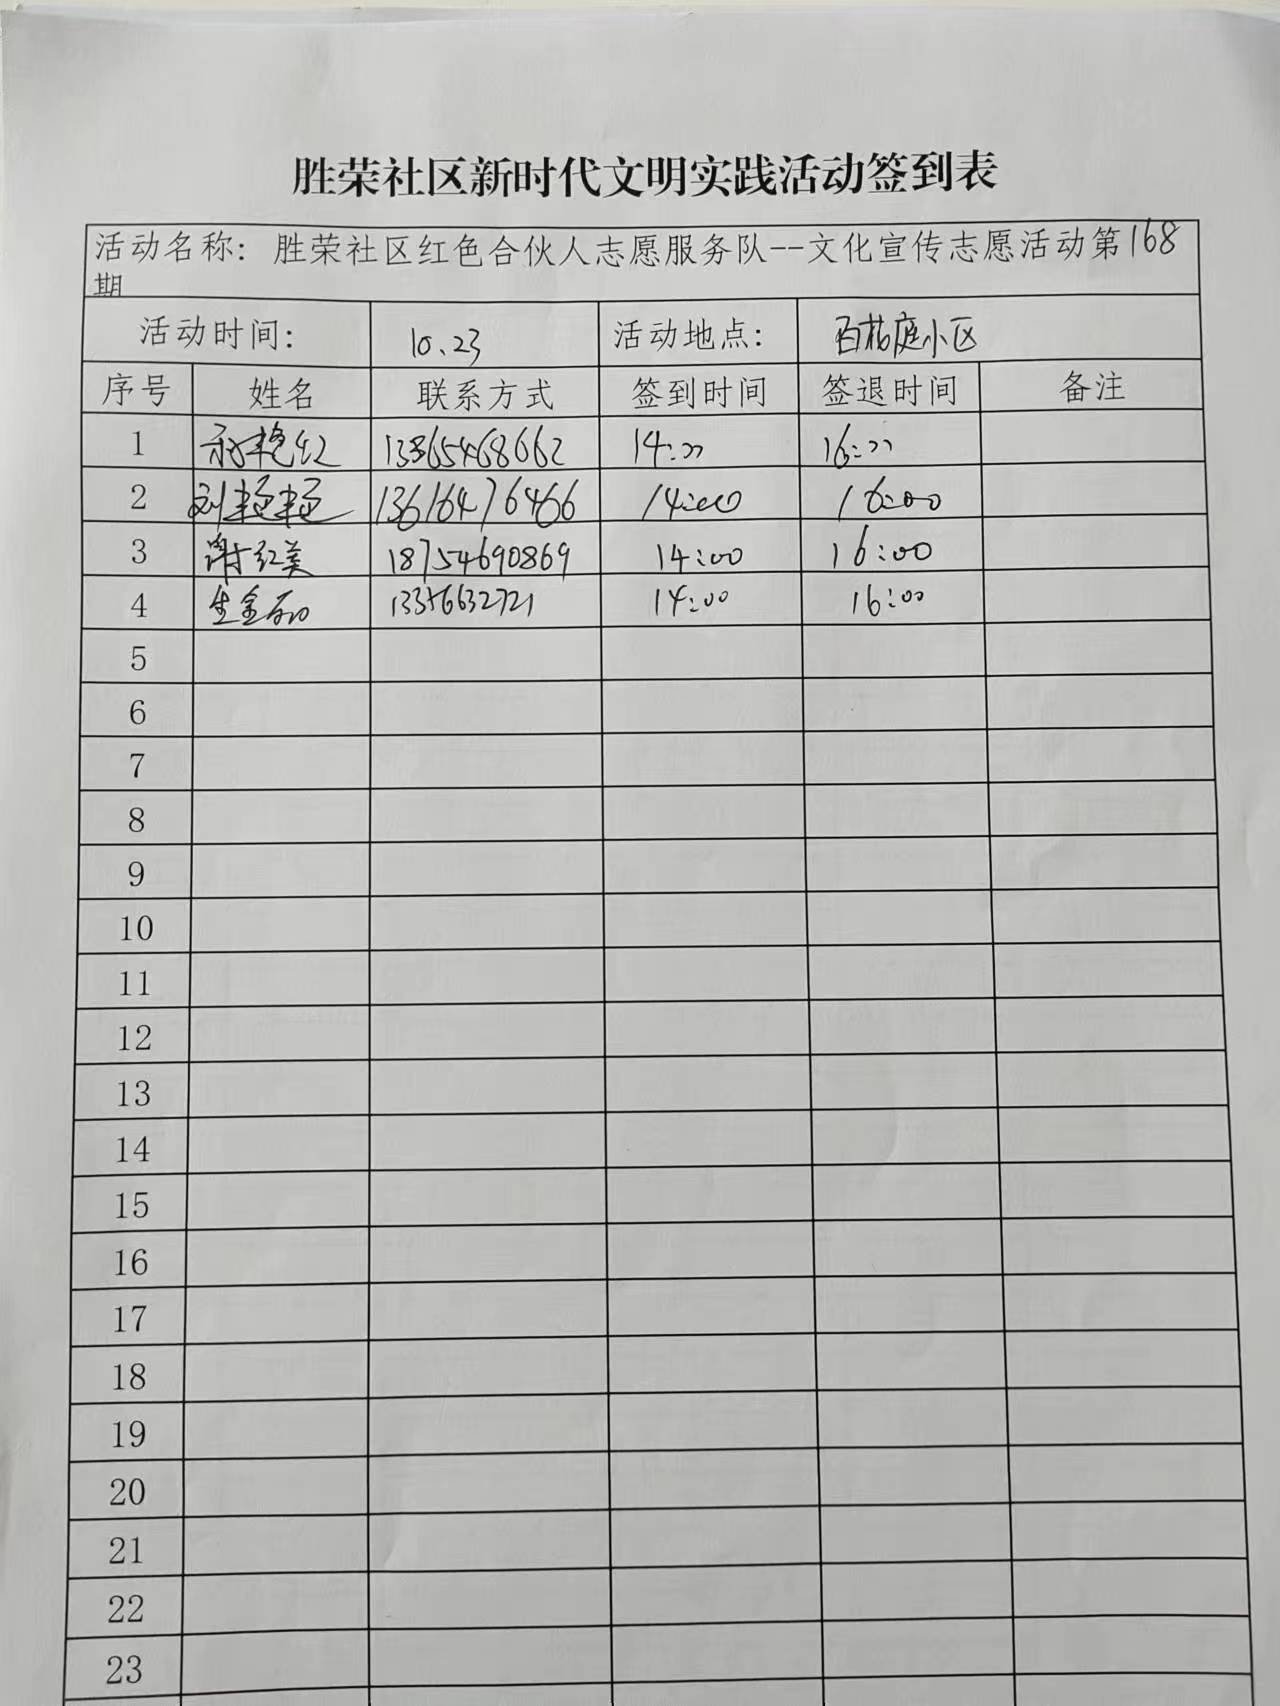 胜荣社区新时代文明实践活动签到表
活动名称：胜荣社区红色合伙人志愿服务队--文化宣传志愿活动第168
期
活动时间： 10.23 活动地点： 百花庭小区
序号 姓名 联系方式 签到时间 签退时间 备注
1 艳红 13365468662 14:00 16:00
2 刘 13616476466 14:00 16:00
3 谢红美 18754690869 14:00 16:00
4 生金 13356632721 14:00 16:00
5
6
7
8
9
10
11
12
13
14
15
16
17
18
19
20
21
22
23